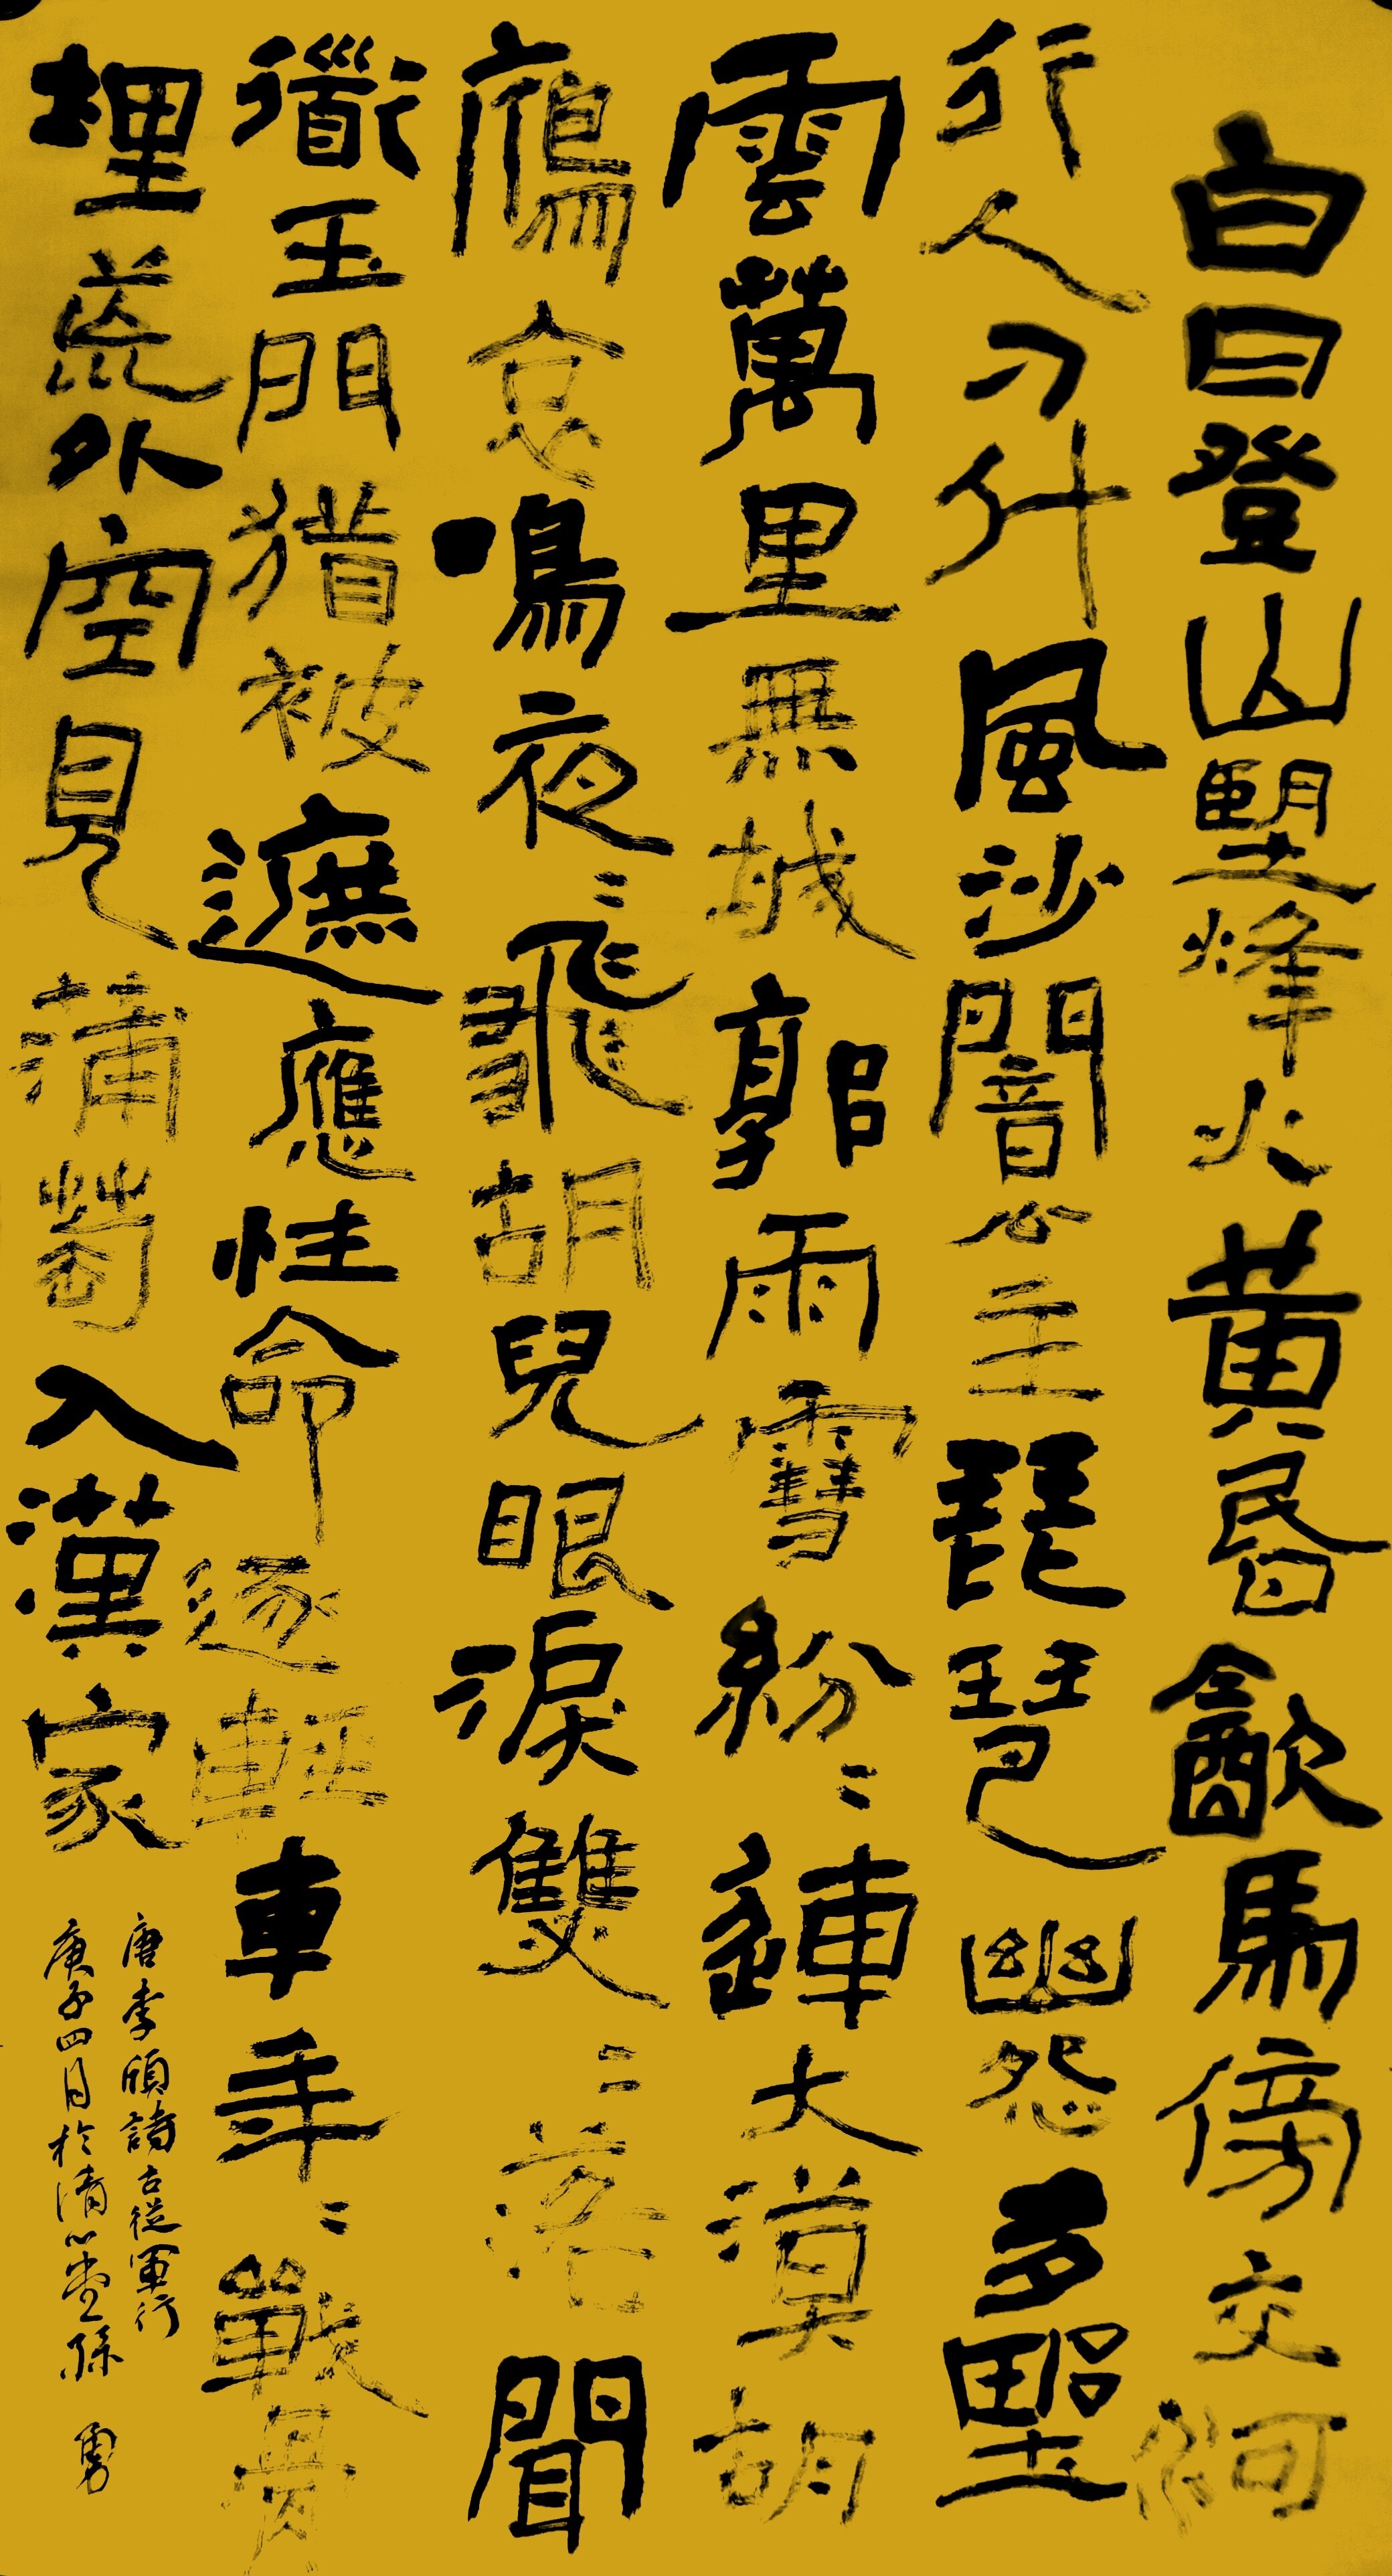 白日登山朢烽火黄昬㱃馬傍交河
行人刁斗風沙闇公主琵琶幽怨多野
雲萬里無城郭雨雪紛々連大漠胡
鴈哀鳴夜々飛胡兒眼淚雙々落聞
衜玉門猶被遮應性命逐輕車年々戰骨
埋荒外空見蒲萄入漢家
唐李頎詩古從軍行
庚子四月於清心堂孫勇